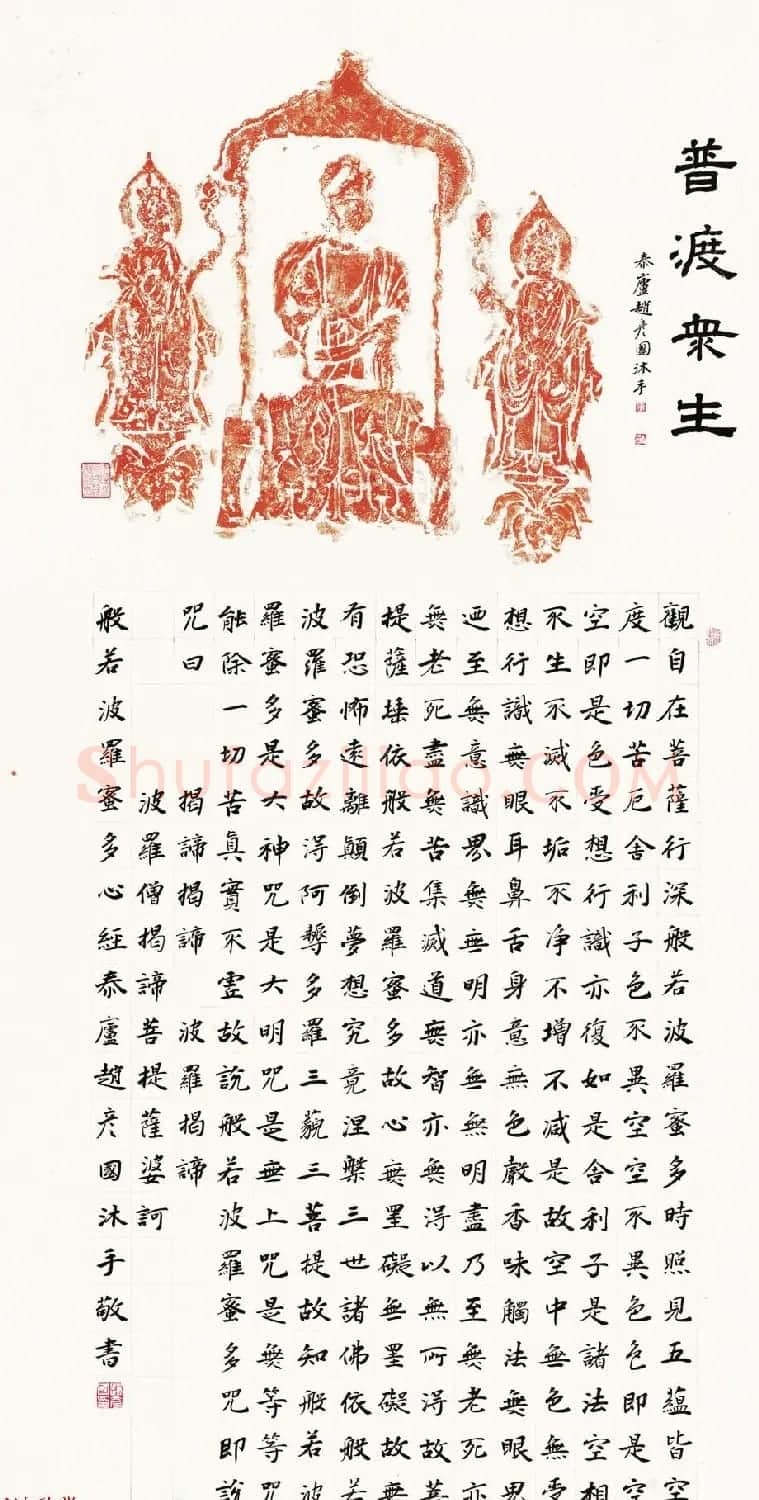 普渡衆生
泰廬趙彥國沐手
觀自在菩薩行深般若波羅蜜多時照見五蘊皆空
度一切苦厄舍利子色不異空空不異色色即是空
空即是色受想行識亦復如是舍利子是諸法空相
不生不滅不垢不净不增不減是故空中無色無受
想行識無眼耳鼻舌身意無色聲香味觸法無眼界
迺至無意識界無無明亦無無明盡乃至無老死亦
無老死盡無苦集滅道無智亦無得以無所得故菩
提薩埵依般若波羅蜜多故心無罣礙無罣礙故無
有恐怖遠離顛倒夢想究竟涅槃三世諸佛依般若
波羅蜜多故得阿耨多羅三藐三菩提故知般若波
羅蜜多是大神咒是大明咒是無上咒是無等等咒
能除一切苦真實不虛故說般若波羅蜜多咒即說
咒曰 揭諦揭諦 波羅揭諦
波羅僧揭諦菩提薩婆訶
般若波羅蜜多心經泰廬趙彥國沐手敬書
Shufaziliao.COM